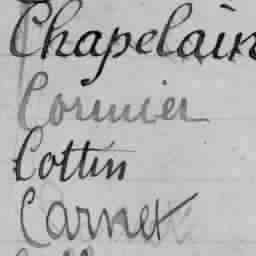 Chapelain
Cormier
Cottin
Carnet